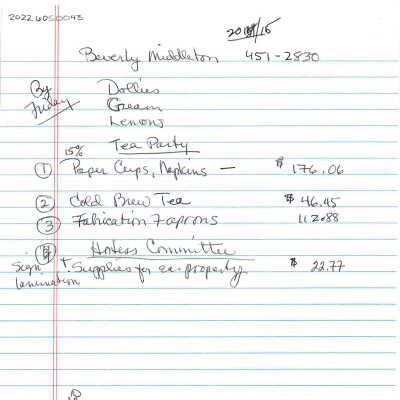 2022 605 0043
Beverly Middleton 451-2830
By Dollies
Friday Cream
Lemons
15% Tea Party
1 Paper Cups, Napkins — $ 176.06
2 Cold Brew Tea $ 46.45
3 Fabrication 7 aprons 112.88
4 Hotess Committee
Sign + Supplies for ea. property $ 22.77
lamination